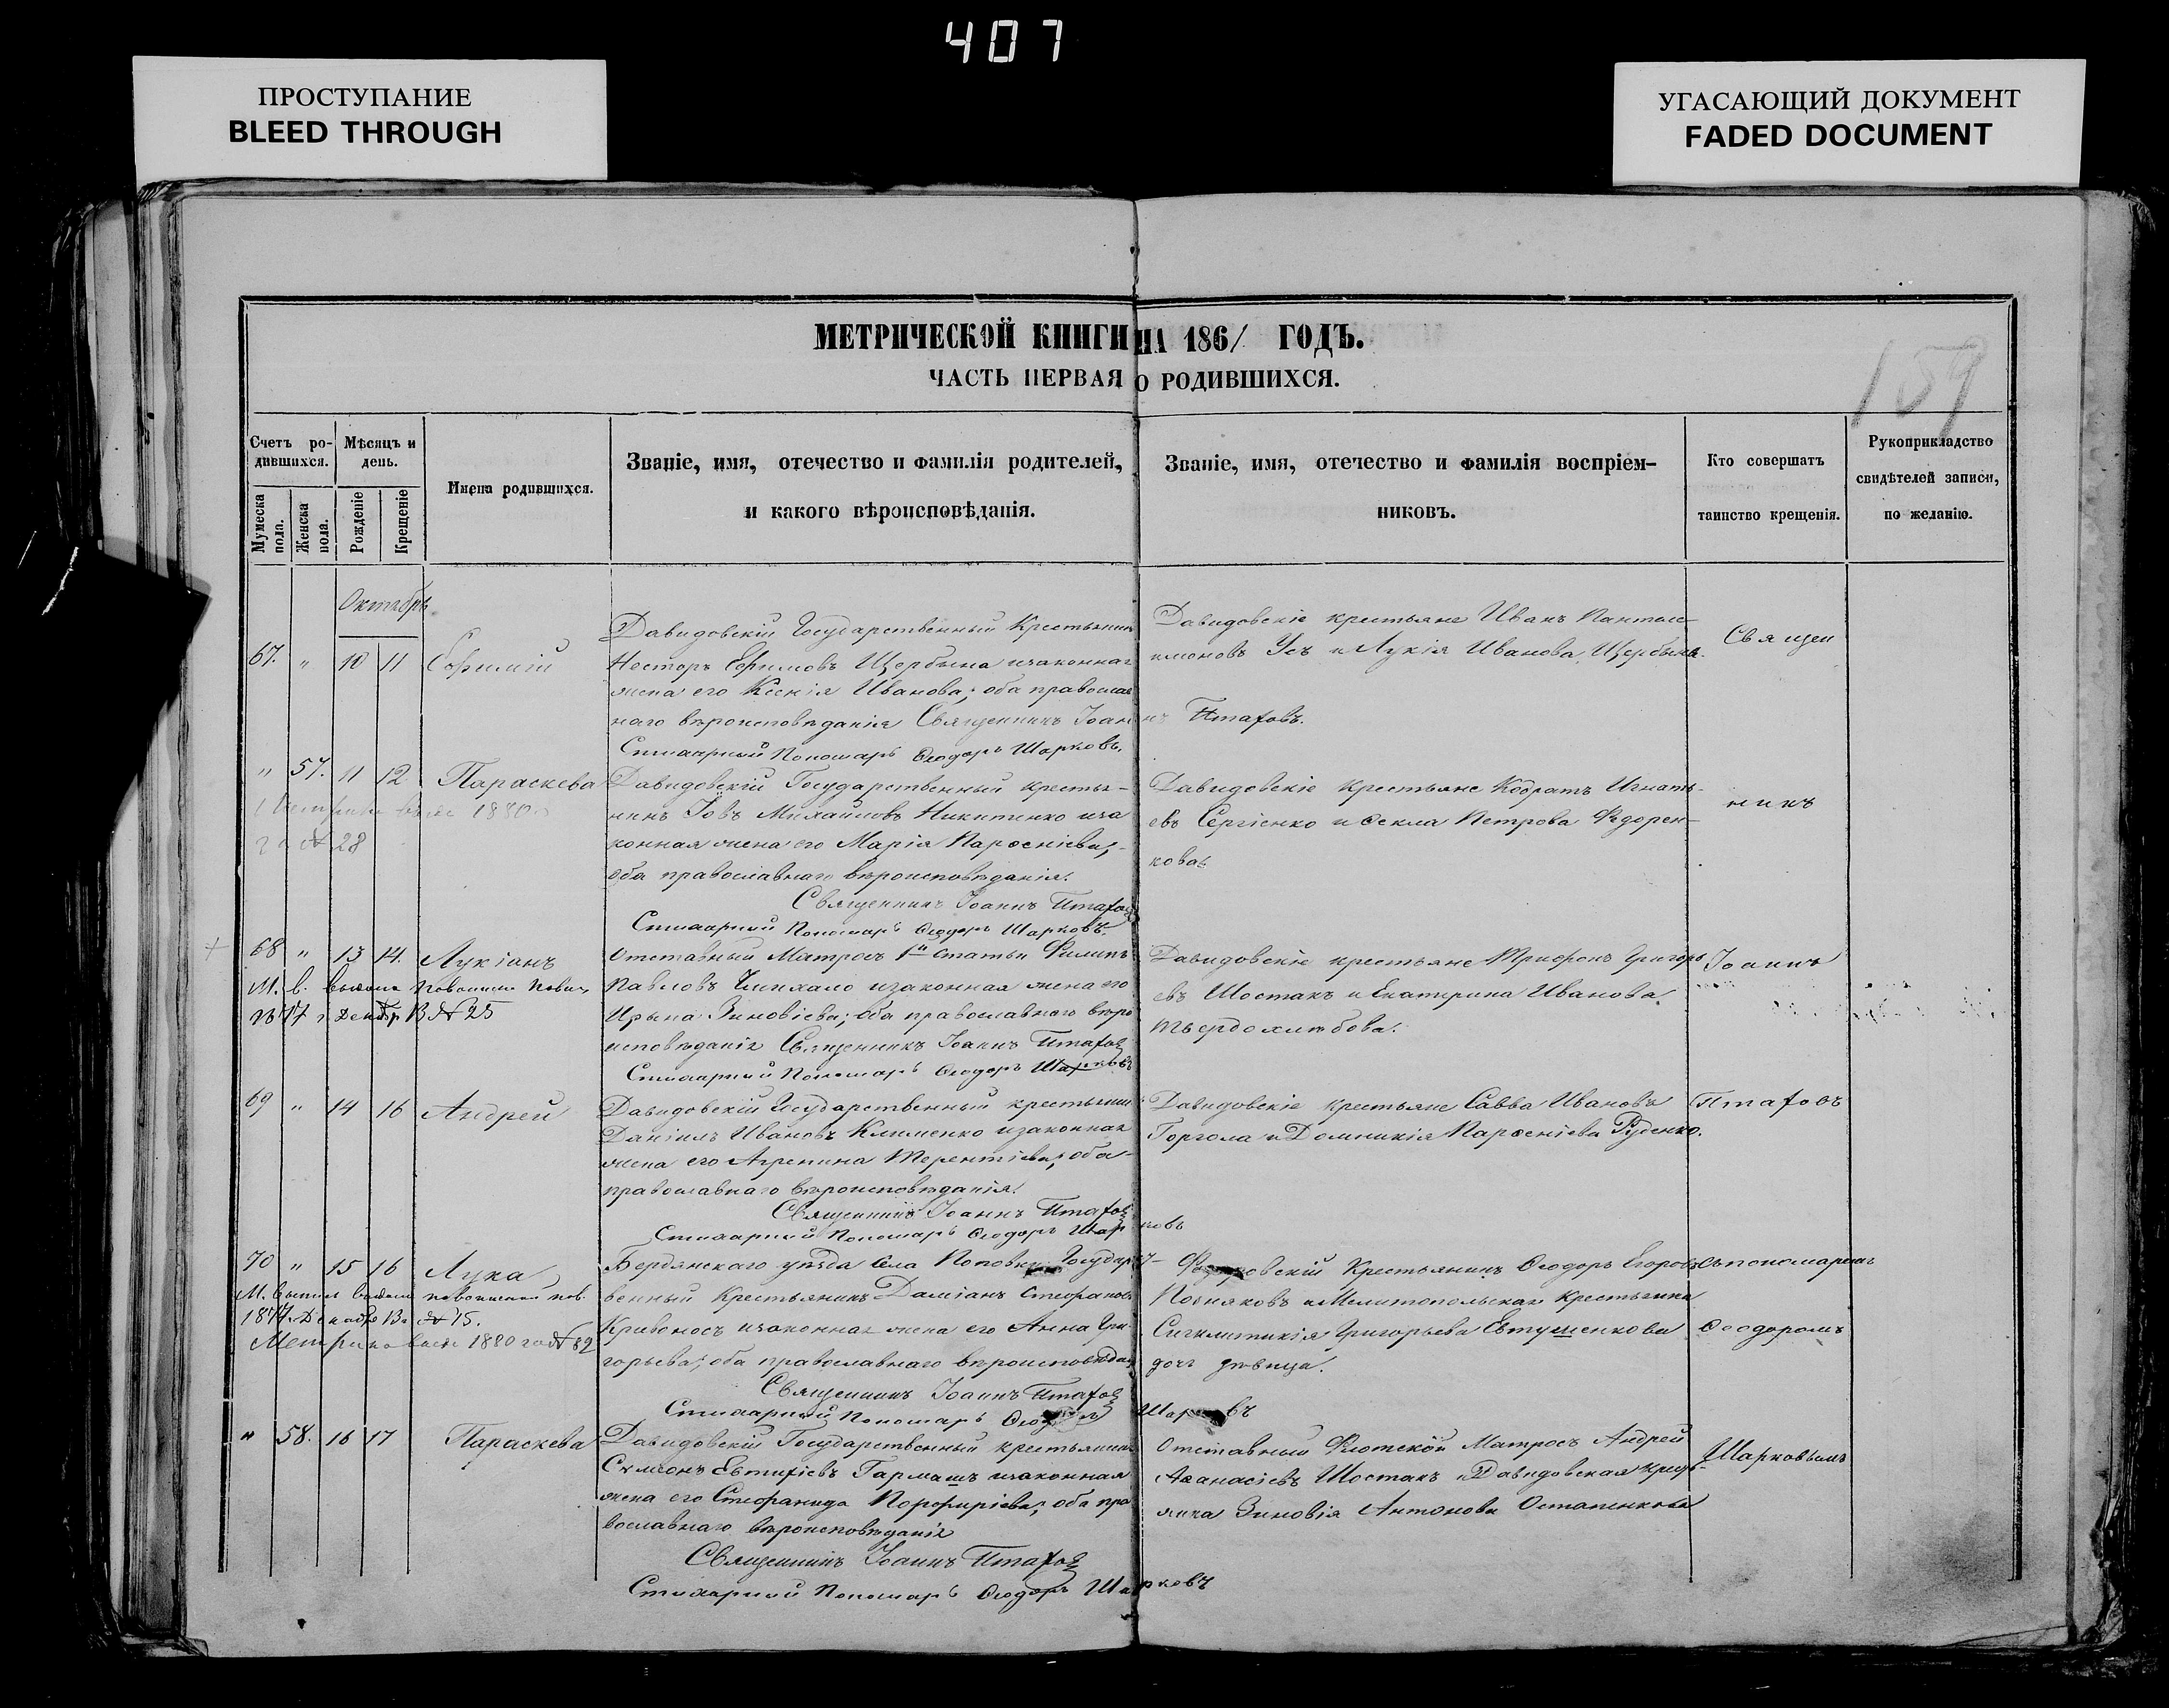 407
ПРОСТУПАНИЕ
BLEED THROUGH
УГАСАЮЩИЙ ДОКУМЕНТ
FADED DOCUMENT
МЕТРИЧЕСКОЙ КНИГИ НА 1861 ГОДЪ.
ЧАСТЬ ПЕРВАЯ О РОДИВШИХСЯ.
159
Счетъ ро-
дившихся.
Мужеска пола.
Женска пола.
Мѣсяцъ и
день.
Рожденіе
Крещеніе
Имена родившихся.
Званіе, имя, отечество и фамилія родителей,
и какого вѣроисповѣданія.
Званіе, имя, отечество и фамилія воспріем-
никовъ.
Кто совершатъ
таинство крещенія.
Рукоприкладство
свидѣтелей записи,
по желанію.
Октябрь
67. " 10 11 Ефимій
Давидовскій Государственный Крестьянин
Несторъ Ефимовъ Щербина изаконная
жена его Ксенія Иванова; оба православ
наго вѣроисповѣданія Священникъ Іоаннъ Птаховъ.
Стихарный Пономарь Ѳеодоръ Шарковъ.
Давидовскіе крестьяне Иванъ Пантеле-
имоновъ Усъ и Лукія Иванова Щербина.
Священ
" 57. 11 12 Параскева
1880
№ 28
Давидовскій Государственный крестья-
нинъ Іовъ Михайловъ Никитенко иза
конная жена его Марія Парѳеніева;
оба православнаго вѣроисповѣданія.
Священникъ Іоаннъ Птаховъ
Стихарный Пономарь Ѳеодоръ Шарковъ.
Давидовскіе крестьяне Кодратъ Игнать-
евъ Сергіенко и Ѳекла Петрова Федорен-
кова.
никъ
68 " 13 14. Лукіанъ
М. в. выдана повоинской повин.
1877 г Декабр 13 № 25
Отставный Матросъ 1й статьи Филипъ
Павловъ Чмихало изаконная жена его
Ирына Зиновіева; оба православнаго вѣро
исповѣданія Священникъ Іоаннъ Птаховъ
Стихарный Пономарь Ѳеодоръ Шарковъ
Давидовскіе крестьяне Трифонъ Григорь
евъ Шостакъ и Екатерина Иванова
Твердохлѣбова.
Іоаннъ
69 " 14 16 Андрей
Давидовскій Государственный крестьянин
Даніилъ Ивановъ Клименко изаконная
жена его Агрепина Терентіева; оба
православнаго вѣроисповѣданія.
Священникъ Іоаннъ Птаховъ
Стихарный Пономарь Ѳеодоръ Шарковъ
Давидовскіе крестьяне Савва Ивановъ
Горгола и Домникія Парѳеніева Руденко.
Птаховъ
70 " 15 16 Лука
повоинской пов.
1877. Декабр 13 № 15.
Метрика 1880 год № 82
Бердянскаго уѣзда Села Поповки Государст-
венный Крестьянинъ Даміанъ Стефановъ
Кривоносъ изаконная жена его Анна Гри-
горьева; оба православнаго вѣроисповѣдан
Священникъ Іоаннъ Птаховъ
Стихарный Пономарь Ѳеодоръ Шарковъ
Крестьянинъ Ѳеодоръ Егоровъ
Позняковъ и Мелитопольская крестьянка
Сигклитикія Григорьева Евтушенкова
дѣвица.
съ пономаремъ
Ѳеодоромъ
" 58. 16 17 Параскева
Давидовскій Государственный крестьянинъ
Сѵмеонъ Евтихіевъ Гармашъ изаконная
жена его Стефанида Порфиріева; оба пра
вославнаго вѣроисповѣданія
Священникъ Іоаннъ Птаховъ
Стихарный Пономарь Ѳеодоръ Шарковъ
Отставный Флотской Матросъ Андрей
Аѳанасіевъ Шостакъ и Давидовская кресть-
янка Зиновія Антонова Остапенкова
Шарковымъ